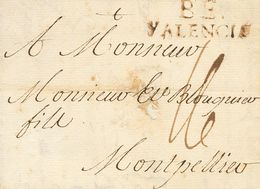 B. S.
VALENCIA
A Monsieur
Monsieur
fils
Montpellier